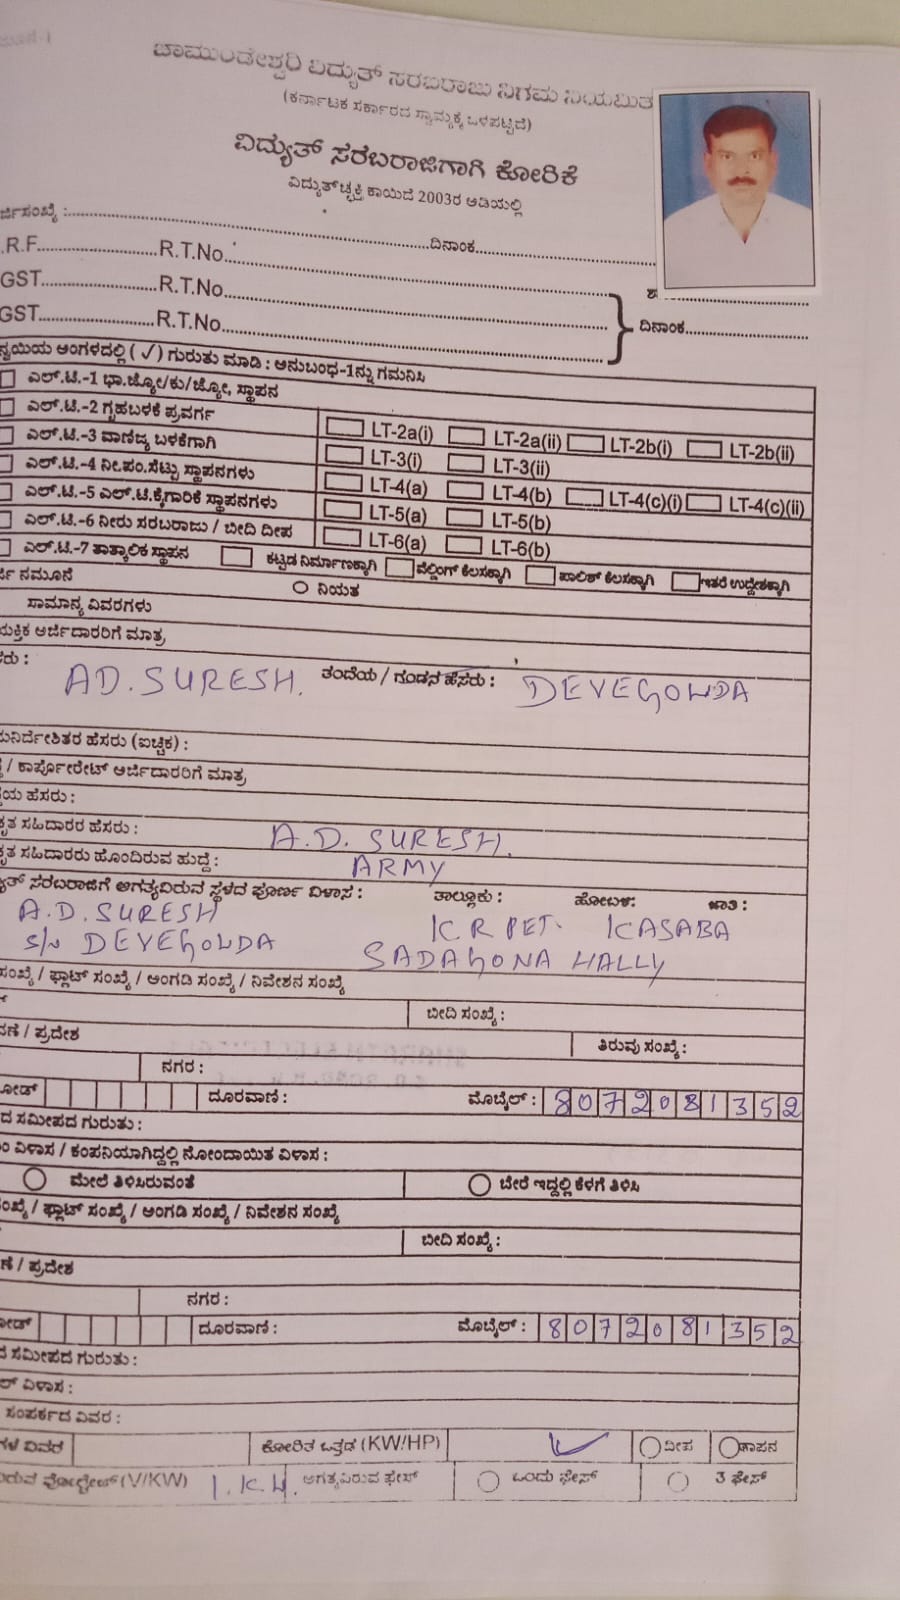 ಚಾಮುಂಡೇಶ್ವರಿ ವಿದ್ಯುತ್ ಸರಬರಾಜು ನಿಗಮ ನಿಯಮಿತ
(ಕರ್ನಾಟಕ ಸರ್ಕಾರದ ಸ್ವಾಮ್ಯಕ್ಕೆ ಒಳಪಟ್ಟಿದೆ)
ವಿದ್ಯುತ್ ಸರಬರಾಜಿಗಾಗಿ ಕೋರಿಕೆ
ವಿದ್ಯುತ್‌ಚ್ಛಕ್ತಿ ಕಾಯಿದೆ 2003ರ ಅಡಿಯಲ್ಲಿ
ರ್ಜಿಸಂಖ್ಯೆ :.......... ದಿನಾಂಕ..........
.R.F.......... R.T.No..........
GST.......... R.T.No..........
GST.......... R.T.No.......... } ದಿನಾಂಕ..........
ನ್ವಯಿಯ ಅಂಗಳದಲ್ಲಿ (✓) ಗುರುತು ಮಾಡಿ : ಅನುಬಂಧ-1ನ್ನು ಗಮನಿಸಿ
ಎಲ್.ಟಿ.-1 ಭಾ.ಜ್ಯೋ/ಕು/ಜ್ಯೋ, ಸ್ಥಾಪನ
ಎಲ್.ಟಿ.-2 ಗೃಹಬಳಕೆ ಪ್ರವರ್ಗ LT-2a(i) LT-2a(ii) LT-2b(i) LT-2b(ii)
ಎಲ್.ಟಿ.-3 ವಾಣಿಜ್ಯ ಬಳಕೆಗಾಗಿ LT-3(i) LT-3(ii)
ಎಲ್.ಟಿ.-4 ನೀ.ಪಂ.ಸೆಟ್ಟು ಸ್ಥಾಪನಗಳು LT-4(a) LT-4(b) LT-4(c)(i) LT-4(c)(ii)
ಎಲ್.ಟಿ.-5 ಎಲ್.ಟಿ.ಕೈಗಾರಿಕೆ ಸ್ಥಾಪನಗಳು LT-5(a) LT-5(b)
ಎಲ್.ಟಿ.-6 ನೀರು ಸರಬರಾಜು / ಬೀದಿ ದೀಪ LT-6(a) LT-6(b)
ಎಲ್.ಟಿ.-7 ತಾತ್ಕಾಲಿಕ ಸ್ಥಾಪನ ಕಟ್ಟಡ ನಿರ್ಮಾಣಕ್ಕಾಗಿ ವೆಲ್ಡಿಂಗ್ ಕೆಲಸಕ್ಕಾಗಿ ಪಾಲಿಶ್ ಕೆಲಸಕ್ಕಾಗಿ ಇತರೆ ಉದ್ದೇಶಕ್ಕಾಗಿ
ರ್ಜಿ ನಮೂನೆ ನಿಯತ
ಸಾಮಾನ್ಯ ವಿವರಗಳು
ಯಕ್ತಿಕ ಅರ್ಜಿದಾರರಿಗೆ ಮಾತ್ರ
ಸರು : AD. SURESH. ತಂದೆಯ / ಗಂಡನ ಹೆಸರು : DEVEGOWDA
ಮನಿರ್ದೇಶಿತರ ಹೆಸರು (ಐಚ್ಛಿಕ) :
/ ಕಾರ್ಪೋರೇಟ್ ಅರ್ಜಿದಾರರಿಗೆ ಮಾತ್ರ
ಯ ಹೆಸರು :
ಕೃತ ಸಹಿದಾರರ ಹೆಸರು : A.D. SURESH.
ಕೃತ ಸಹಿದಾರರು ಹೊಂದಿರುವ ಹುದ್ದೆ : ARMY
ತ್ ಸರಬರಾಜಿಗೆ ಅಗತ್ಯವಿರುವ ಸ್ಥಳದ ಪೂರ್ಣ ವಿಳಾಸ : ತಾಲ್ಲೂಕು : ಹೋಬಳಿ: ಜಾತಿ :
A.D. SURESH K R PET. KASABA
S/o DEVEGOWDA SADAGONA HALLY
ಸಂಖ್ಯೆ / ಫ್ಲಾಟ್ ಸಂಖ್ಯೆ / ಅಂಗಡಿ ಸಂಖ್ಯೆ / ನಿವೇಶನ ಸಂಖ್ಯೆ
ಬೀದಿ ಸಂಖ್ಯೆ :
ಣೆ / ಪ್ರದೇಶ ತಿರುವು ಸಂಖ್ಯೆ :
ನಗರ :
ಕೋಡ್ ದೂರವಾಣಿ : ಮೊಬೈಲ್ : 8072081352
ದ ಸಮೀಪದ ಗುರುತು :
ವಿಳಾಸ / ಕಂಪನಿಯಾಗಿದ್ದಲ್ಲಿ ನೋಂದಾಯಿತ ವಿಳಾಸ :
ಮೇಲೆ ತಿಳಿಸಿರುವಂತೆ ಬೇರೆ ಇದ್ದಲ್ಲಿ ಕೆಳಗೆ ತಿಳಿಸಿ
ಸಂಖ್ಯೆ / ಫ್ಲಾಟ್ ಸಂಖ್ಯೆ / ಅಂಗಡಿ ಸಂಖ್ಯೆ / ನಿವೇಶನ ಸಂಖ್ಯೆ
ಬೀದಿ ಸಂಖ್ಯೆ :
ಣೆ / ಪ್ರದೇಶ
ನಗರ :
ಕೋಡ್ ದೂರವಾಣಿ : ಮೊಬೈಲ್ : 8072081352
ದ ಸಮೀಪದ ಗುರುತು :
ಲ್ ವಿಳಾಸ :
ಸಂಪರ್ಕದ ವಿವರ :
ಗಳ ವಿವರ ಕೋರಿಕೆ ಒತ್ತಡ (KW/HP) ದೀಪ ತಾಪನ
ವಿರುವ ವೋಲ್ಟೇಜ್ (V/KW) 1.K.W. ಅಗತ್ಯವಿರುವ ಫೇಸ್ ಒಂದು ಫೇಸ್ 3 ಫೇಸ್